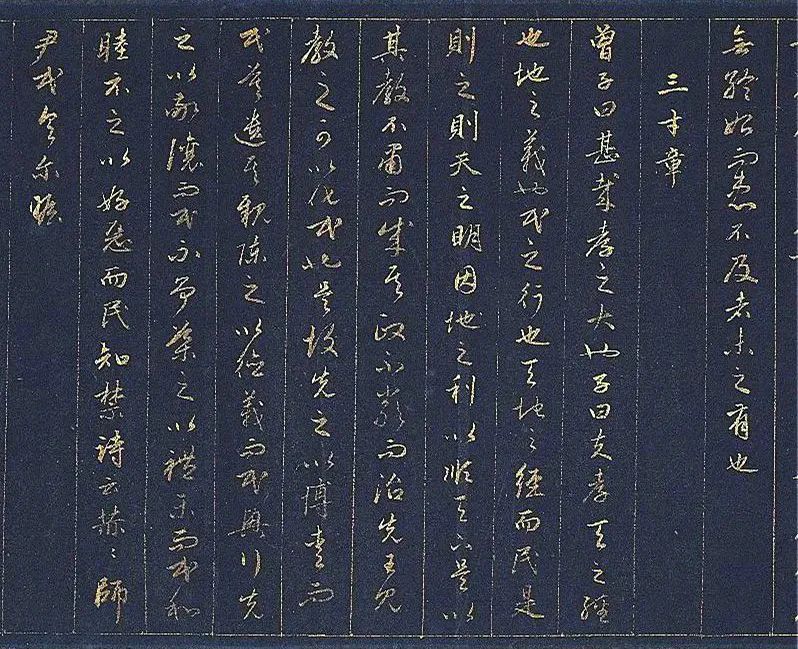 無終始而患不及者未之有也
三才章
曾子曰甚哉孝之大也子曰夫孝天之經
也地之義也民之行也天地之經而民是
則之則天之明因地之利以順天下是以
其教不肅而成其政不嚴而治先王見
教之可以化民也是故先之以博愛而
民莫遺其親陳之以德義而民興行先
之以敬讓而民不爭導之以禮樂而民和
睦示之以好惡而民知禁詩云赫〻師
尹民具爾瞻